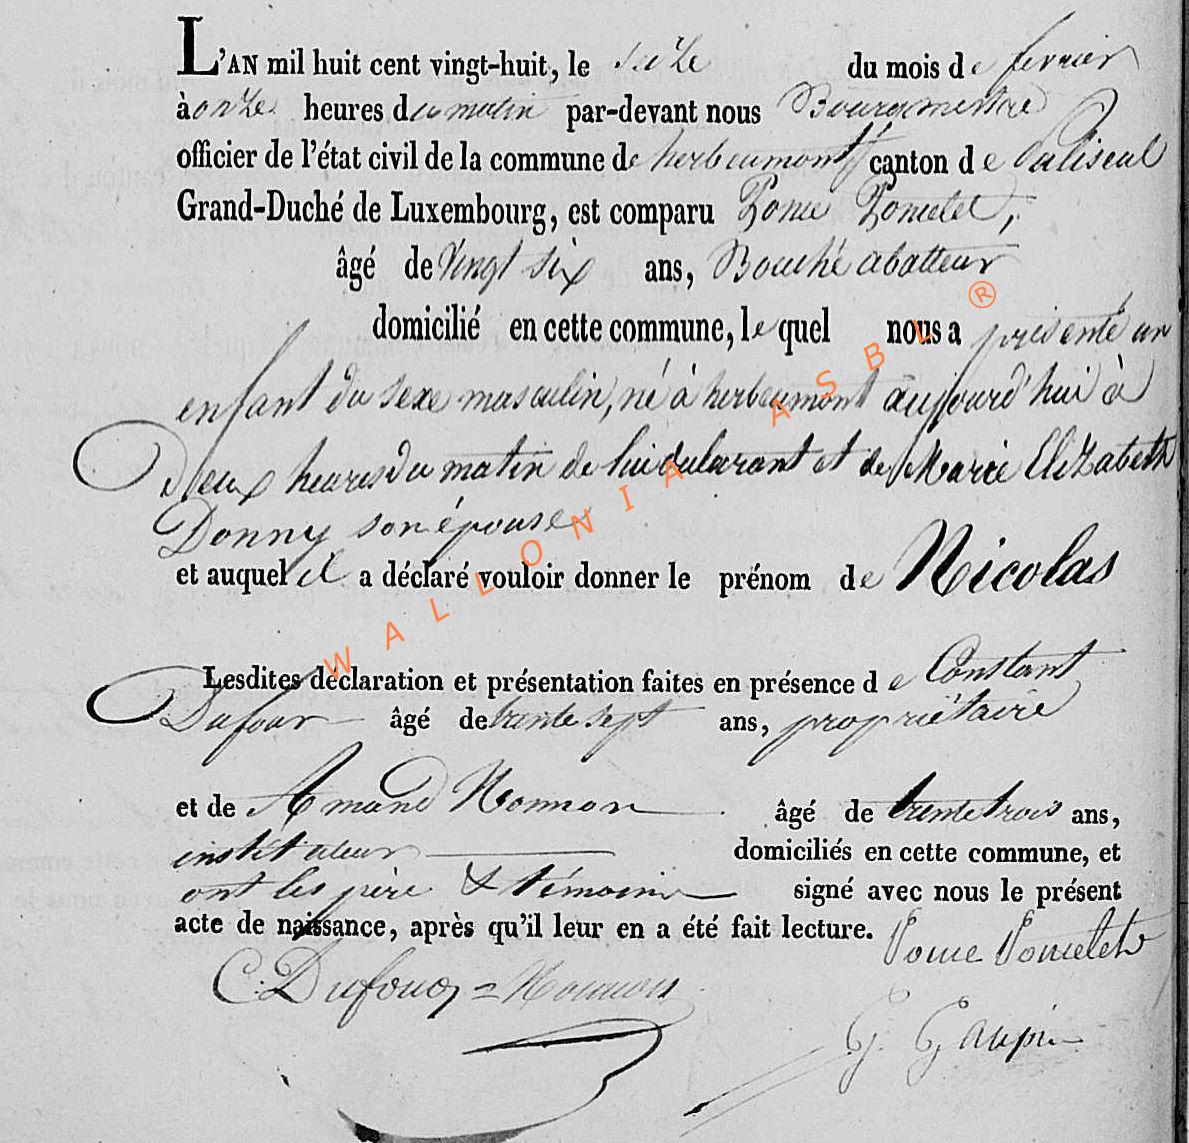 L'AN mil huit cent vingt-huit, le seize du mois de fevrier
à onze heures du matin par-devant nous Bourgmestre
officier de l'état civil de la commune de herbeumont canton de paliseul
Grand-Duché de Luxembourg, est comparu Ponce Poncelet,
âgé de Vingt six ans, Bouché abatteur
domicilié en cette commune, le quel nous a présenté un
enfant du sexe masculin, né à herbeumont aujourd'hui à
Deux heures du matin de lui déclarant et de Marie Elizabeth
Donny son épouse
et auquel il a déclaré vouloir donner le prénom de Nicolas
Lesdites déclaration et présentation faites en présence de Constant
Dufour âgé de trente sept ans, propriétaire
et de Amand Nonnon âgé de trente trois ans,
instituteur domiciliés en cette commune, et
ont les père & témoins signé avec nous le présent
acte de naissance, après qu'il leur en a été fait lecture.
Ponce Poncelet
C. Dufour = Nonnon
G.
WALLONIA ASBL ®